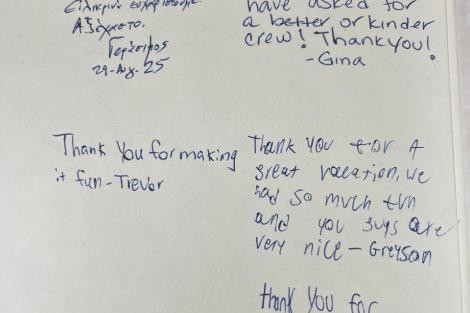 Ειλικρινά ευχαριστούμε.
Αξέχαστο.
Γεράσιμος
29-Αυγ. 25
have asked for
a better or kinder
crew! Thank you!
-Gina
Thank You for making
it fun-Trevor
Thank YOU for A
great vacation, we
had so much fun
and you guys are
very nice - Greyson
thank You for